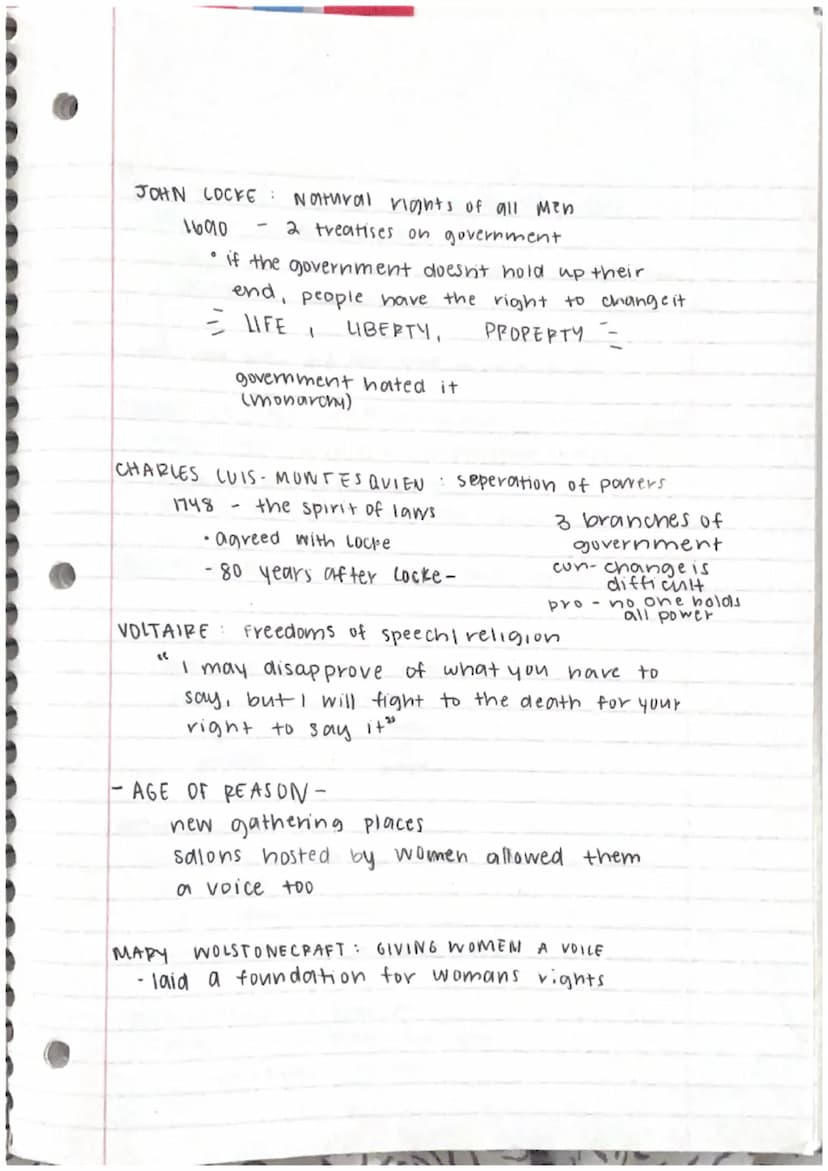 JOHN LOCKE : Natural rights of all Men
1690 - 2 treatises on government
• if the government doesnt hold up their
end, people have the right to change it
LIFE , LIBERTY, PROPERTY
government hated it
(monarchy)
CHARLES LUIS-MONTESQUIEN : seperation of powers
1748 - the spirit of laws
• agreed with Locke
- 80 years after Locke -
3 branches of
government
con- change is
difficult
pro - no one holds
all power
VOLTAIRE : Freedoms of speech/religion
"I may disapprove of what you have to
say, but I will fight to the death for your
right to say it"
- AGE OF REASON -
new gathering places
salons hosted by women allowed them
a voice too
MARY WOLSTONECRAFT : GIVING WOMEN A VOICE
- laid a foundation for womans rights